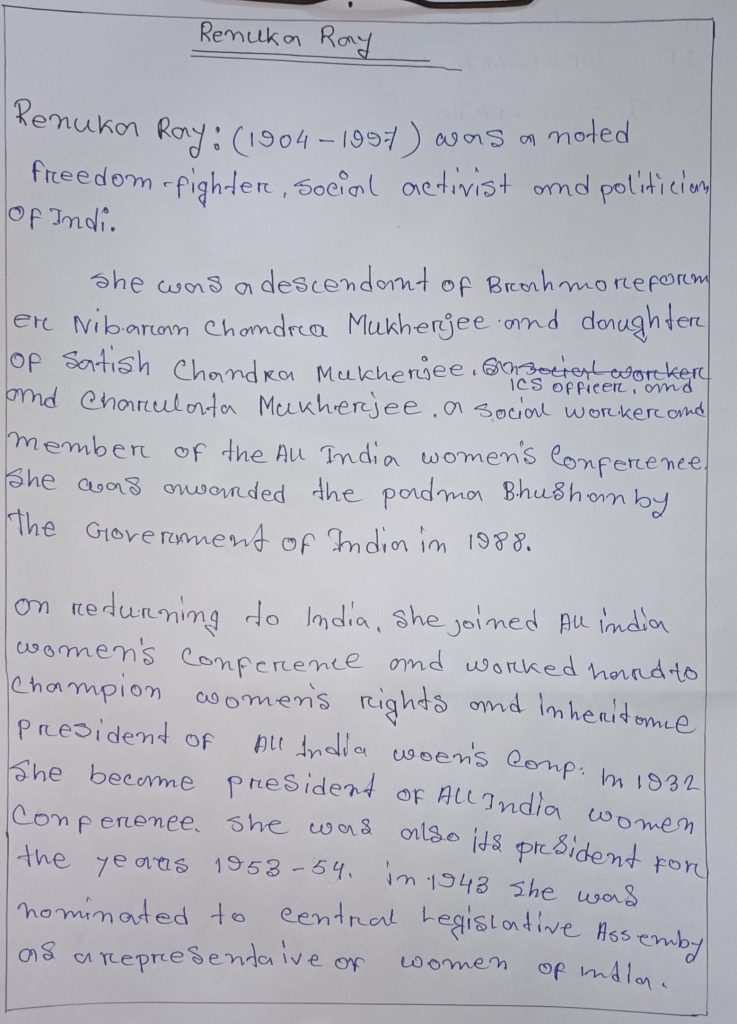 Renuka Ray
Renuka Ray: (1904-1997) was a noted
freedom-fighter, social activist and politician
of Indi.
she was a descendant of Brahmo reform
er Nibaran Chandra Mukherjee and daughter
of Satish Chandra Mukherjee,
ICS officer, and
and Charulata Mukherjee, a social worker and
member of the All India women's Conference.
She was awarded the padma Bhushan by
The Government of India in 1988.
on returning to India, she joined All india
women's Conference and worked hard to
Champion women's rights and inheritance
president of All India woen's Conf: In 1932
She became president of All India women
Conference. she was also its president for
the years 1953-54. in 1943 she was
nominated to central Legislative Assemby
as a representaive of women of india.